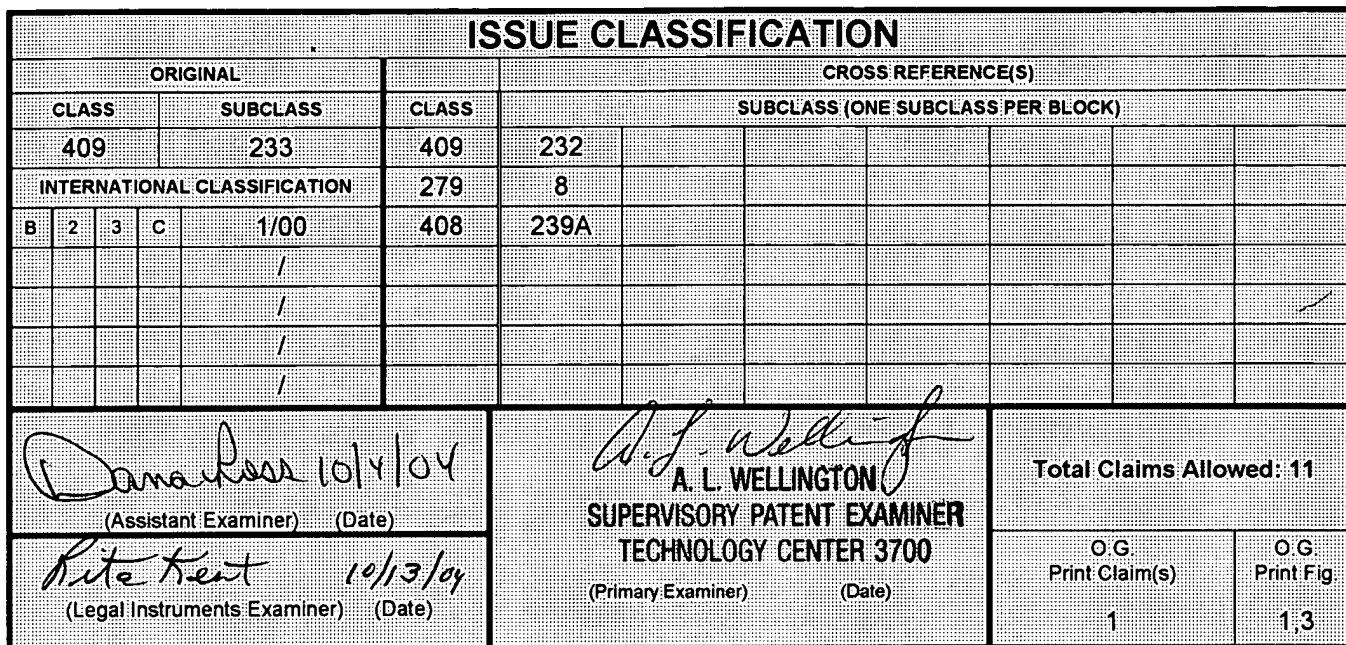 ISSUE CLASSIFICATION
ORIGINAL CROSS REFERENCE(S)
CLASS SUBCLASS CLASS SUBCLASS (ONE SUBCLASS PER BLOCK)
409 233 409 232
INTERNATIONAL CLASSIFICATION 279 8
B 2 3 C 1/00 408 239A
/
/
/
/
Dana Ross 10/4/04
(Assistant Examiner) (Date)
Rita Kent 10/13/04
(Legal Instruments Examiner) (Date)
A. L. Wellington
A. L. WELLINGTON
SUPERVISORY PATENT EXAMINER
TECHNOLOGY CENTER 3700
(Primary Examiner) (Date)
Total Claims Allowed: 11
O.G. Print Claim(s)
1
O.G. Print Fig.
1,3